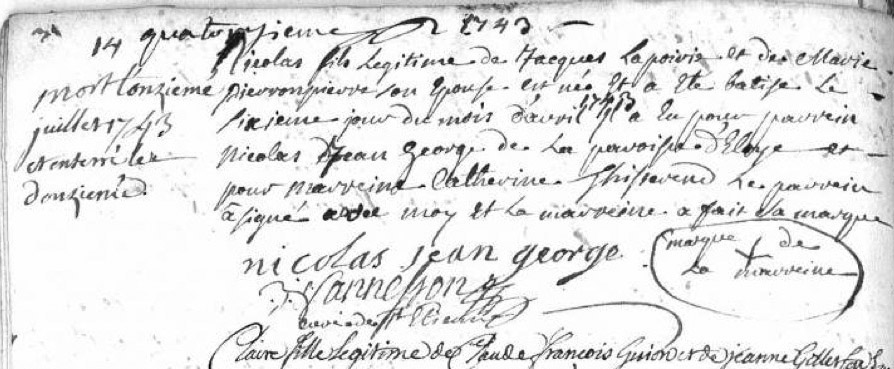 14 quatorsieme 1743
Nicolas fils legitime de Jacques Lapoirie et de Marie
pierronpierre son Epouse est née Et a Ete batise Le
sixieme jour du mois d'avril 1743 il a Eu pour parrein
Nicolas Jean George de La paroisse d'Eloye et
pour marreine Catherine Le parrein
à signé avec moy Et La marreine a fait sa marque
mort l'onzieme
juillet 1743
et enterré le
douzieme
nicolas jean george
marque de
La marreine
J. Vannesson
curé de St Etienne
Claire fille legitime de Claude françois Guion et de jeanne